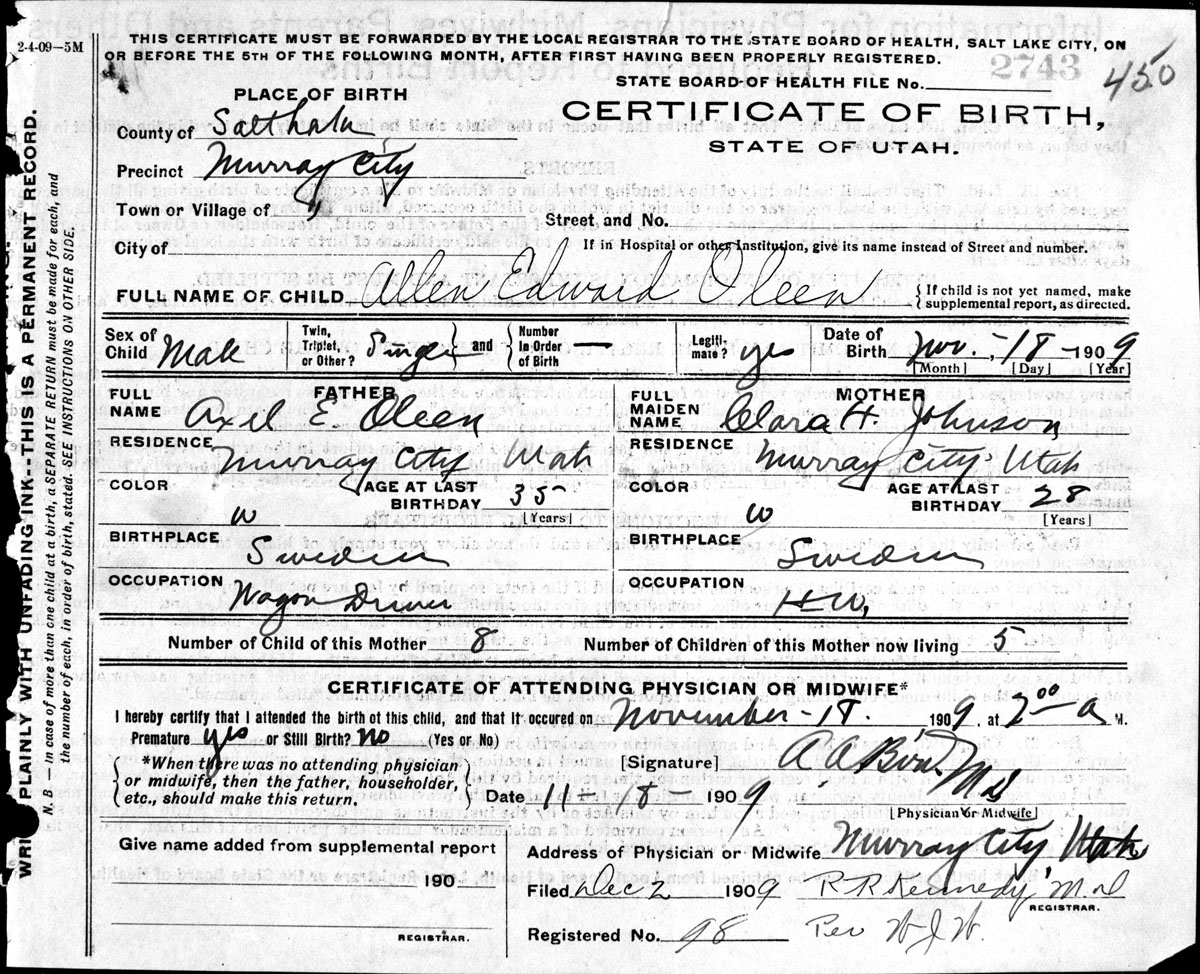 2-4-09—5M
THIS CERTIFICATE MUST BE FORWARDED BY THE LOCAL REGISTRAR TO THE STATE BOARD OF HEALTH, SALT LAKE CITY, ON
OR BEFORE THE 5TH OF THE FOLLOWING MONTH, AFTER FIRST HAVING BEEN PROPERLY REGISTERED.
2743
450
STATE BOARD OF HEALTH FILE No.
PLACE OF BIRTH
CERTIFICATE OF BIRTH,
STATE OF UTAH.
County of Salt Lake
Precinct Murray City
Town or Village of
Street and No.
City of
If in Hospital or other Institution, give its name instead of Street and number.
FULL NAME OF CHILD Allen Edward Oleen
{ If child is not yet named, make
supplemental report, as directed.
Sex of Child Male
Twin, Triplet, or Other? Single } and { Number In Order of Birth —
Legiti-mate? yes
Date of Birth Nov. - 18 - 1909
[Month] [Day] [Year]
FATHER
FULL NAME Axel E. Oleen
RESIDENCE Murray City Utah
COLOR W
AGE AT LAST BIRTHDAY 35
[Years]
BIRTHPLACE Sweden
OCCUPATION Wagon Driver
MOTHER
FULL MAIDEN NAME Clara H. Johnson
RESIDENCE Murray City Utah
COLOR W
AGE AT LAST BIRTHDAY 28
[Years]
BIRTHPLACE Sweden
OCCUPATION H.W.
Number of Child of this Mother 8
Number of Children of this Mother now living 5
CERTIFICATE OF ATTENDING PHYSICIAN OR MIDWIFE*
I hereby certify that I attended the birth of this child, and that it occured on November - 18. 1909, at 2 00 a M.
Premature yes or Still Birth? no (Yes or No)
*When there was no attending physician
or midwife, then the father, householder,
etc., should make this return.
[Signature] A A
M.D.
Date 11 - 18 - 1909
[Physician or Midwife]
Give name added from supplemental report
190
REGISTRAR.
Address of Physician or Midwife Murray City Utah
Filed Dec 2 1909 R R Kennedy M.D
REGISTRAR.
Registered No. 98 Per W J W.
WRITE PLAINLY WITH UNFADING INK--THIS IS A PERMANENT RECORD.
N. B. — In case of more than one child at a birth, a SEPARATE RETURN must be made for each, and
the number of each, in order of birth, stated. SEE INSTRUCTIONS ON OTHER SIDE.